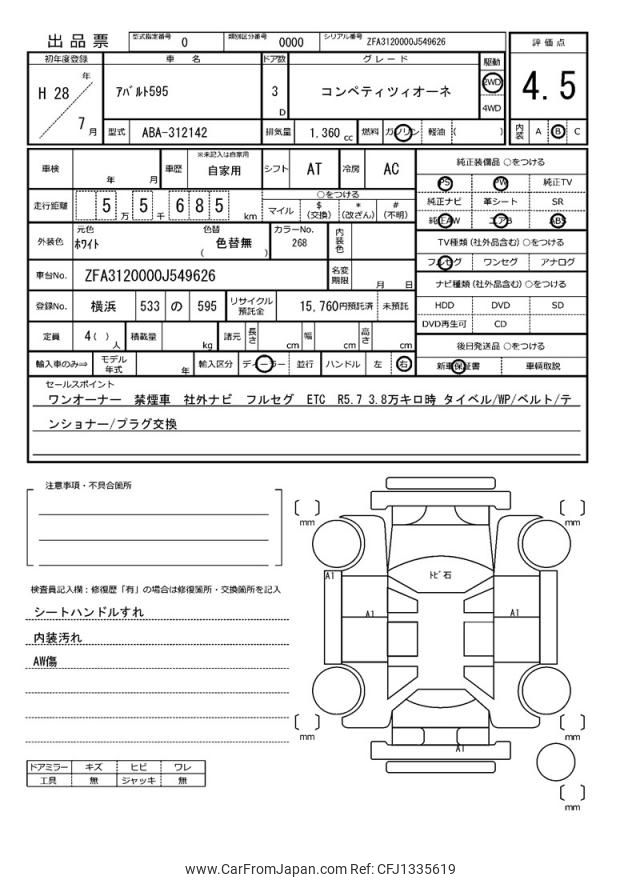 出品票 型式指定番号 0 類別区分番号 0000 シリアル番号 ZFA3120000J549626 評価点
初年度登録 車名 ドア数 グレード 駆動
H 28 年 7 月 アバルト595 3 D コンペティツィオーネ 2WD 4WD 4.5
型式 ABA-312142 排気量 1,360 cc 燃料 ガソリン 軽油 ( ) 内装 A B C
車検 年 月 車歴 ※未記入は自家用 自家用 シフト AT 冷房 AC 純正装備品 ○をつける
PS PW 純正TV
走行距離 5 万 5 千 6 8 5 km ○をつける 純正ナビ 革シート SR
マイル $ (交換) * (改ざん) # (不明) 純正AW エアB ABS
外装色 元色 ホワイト 色替 ( 色替無 ) カラーNo. 268 内装色 TV種類 (社外品含む) ○をつける
フルセグ ワンセグ アナログ
車台No. ZFA3120000J549626 名変期限 月 日 ナビ種類 (社外品含む) ○をつける
登録No. 横浜 533 の 595 リサイクル預託金 15,760円預託済 未預託 HDD DVD SD
DVD再生可 CD
定員 4( ) 人 積載量 kg 諸元 長さ cm 幅 cm 高さ cm 後日発送品 ○をつける
輸入車のみ⇒ モデル年式 年 輸入区分 ディーラー 並行 ハンドル 左 右 新車保証書 車輌取説
セールスポイント
ワンオーナー 禁煙車 社外ナビ フルセグ ETC R5.7 3.8万キロ時 タイベル/WP/ベルト/テ
ンショナー/プラグ交換
注意事項・不具合箇所
検査員記入欄：修復歴「有」の場合は修復箇所・交換箇所を記入
シートハンドルすれ
内装汚れ
AW傷
ドアミラー キズ ヒビ ワレ
工具 無 ジャッキ 無
mm mm
トビ石
A1
A1 A1
mm mm
A1
mm
www.CarFromJapan.com Ref: CFJ1335619